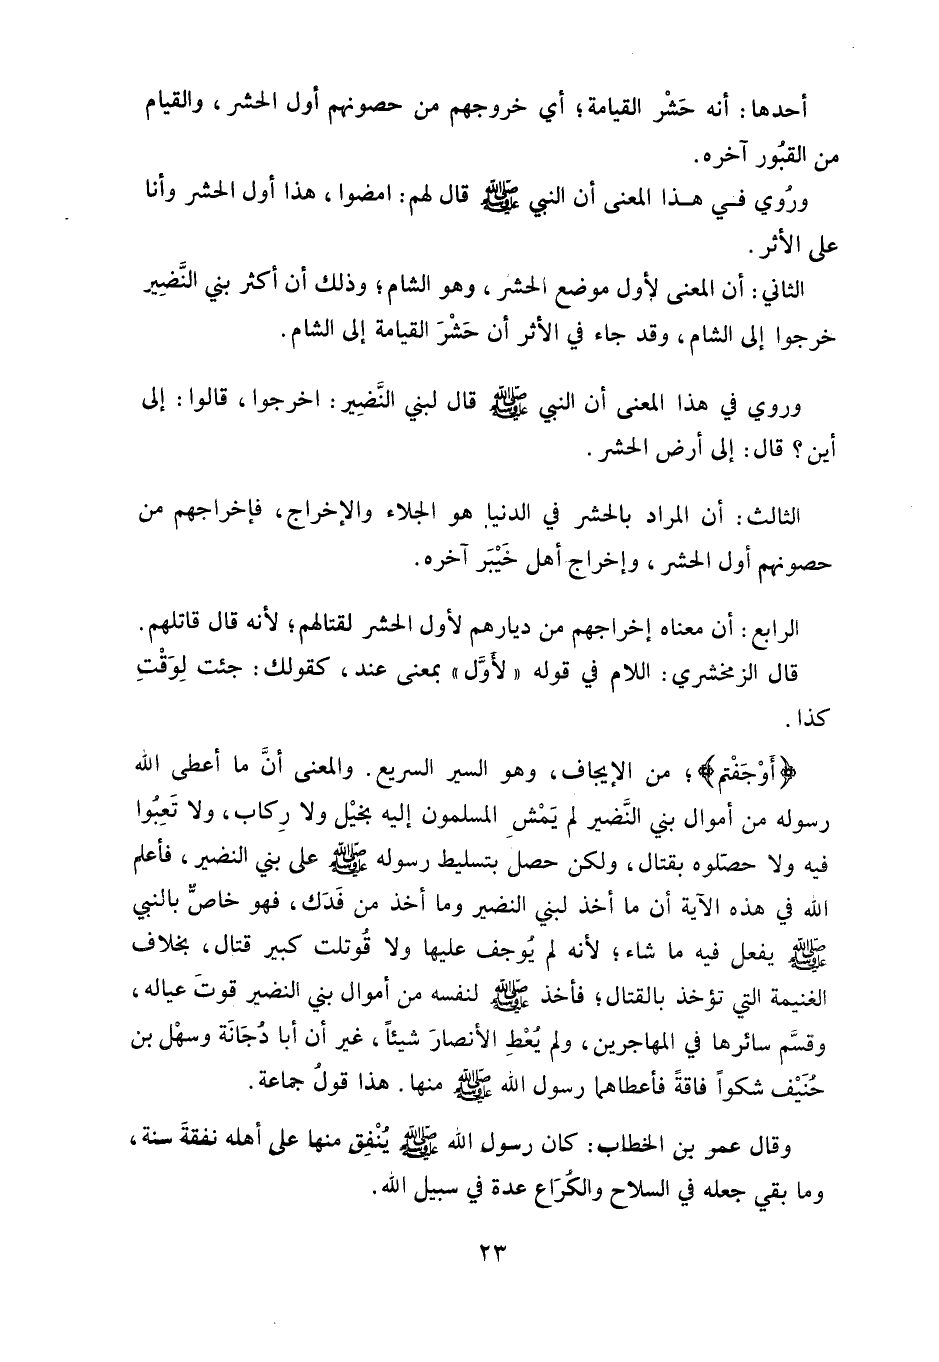 أحدها: أنه حَشْر القيامة؛ أي خروجهم من حصونهم أول الحشر، والقيام
من القبُور آخره.
ورُوي فـي هـذا المعنى أن النبي ﷺ قال لهم: امضوا، هذا أول الحشر وأنا
على الأثر.
الثاني: أن المعنى لأول موضع الحشر، وهو الشام؛ وذلك أن أكثر بني النَّضِير
خرجوا إلى الشام، وقد جاء في الأثر أن حَشْرَ القيامة إلى الشام.
وروي في هذا المعنى أن النبي ﷺ قال لبني النَّضِير: اخرجوا، قالوا: إلى
أين؟ قال: إلى أرض الحشر.
الثالث: أن المراد بالحشر في الدنيا هو الجلاء والإخراج، فإخراجهم من
حصونهم أول الحشر، وإخراج أهل خَيْبَر آخره.
الرابع: أن معناه إخراجهم من ديارهم لأول الحشر لقتالهم؛ لأنه قال قاتلهم.
قال الزمخشري: اللام في قوله «لأَوَّل» بمعنى عند، كقولك: جئت لِوَقْتِ
كذا.
﴿أَوْجَفْتم﴾؛ من الإيجاف، وهو السير السريع. والمعنى أنَّ ما أعطى الله
رسوله من أموال بني النَّضير لم يَمْشِ المسلمون إليه بخيْل ولا رِكاب، ولا تَعِبُوا
فيه ولا حصّلوه بقتال، ولكن حصل بتسليط رسوله ﷺ على بني النضير، فأعلم
الله في هذه الآية أن ما أخذ لبني النضير وما أخذ من فَدَك، فهو خاصٌّ بالنبي
ﷺ يفعل فيه ما شاء؛ لأنه لم يُوجف عليها ولا قُوتلت كبير قتال، بخلاف
الغنيمة التي تؤخذ بالقتال؛ فأخذ ﷺ لنفسه من أموال بني النضير قوتَ عياله،
وقسَّم سائرها في المهاجرين، ولم يُعْطِ الأنصارَ شيئاً، غير أن أبا دُجَانَة وسهْل بن
حُنَيْف شكواً فاقةً فأعطاهما رسول الله ﷺ منها. هذا قولُ جماعة.
وقال عمر بن الخطاب: كان رسول الله ﷺ يُنْفِق منها على أهله نفقةَ سنة،
وما بقي جعله في السلاح والكُرَاع عدة في سبيل الله.
٢٣